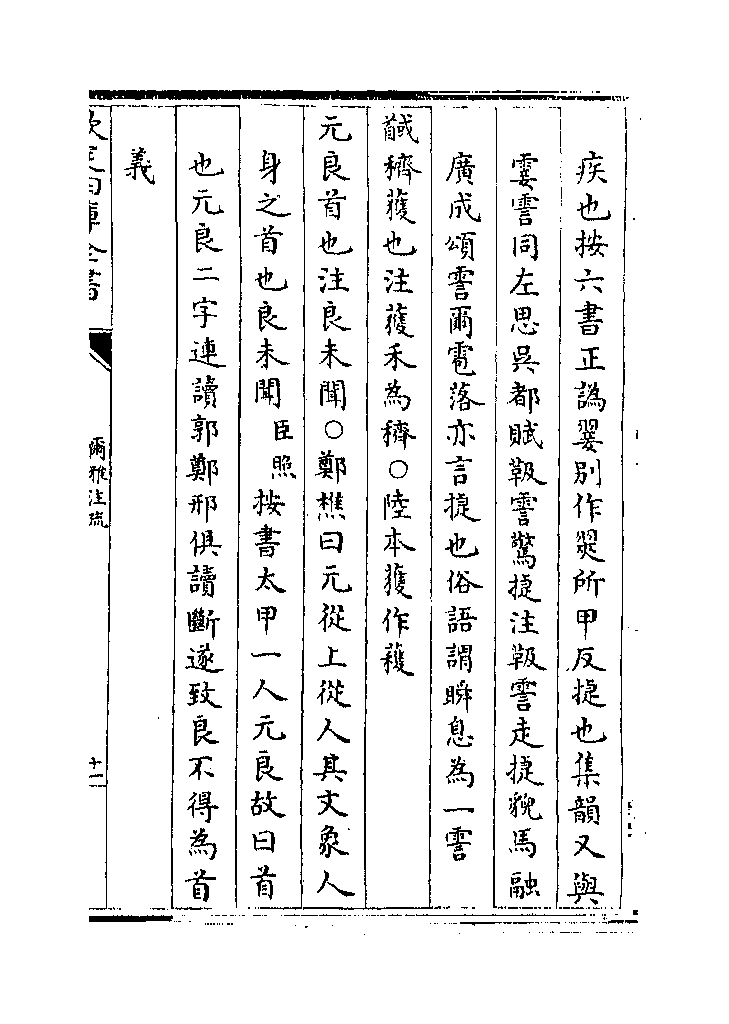 疾也按六書正譌翣別作翜所甲反捷也集韻又與
霎霅同左思吳都賦靸霅驚捷注靸霅走捷貌馬融
廣成頌霅爾雹落亦言捷也俗語謂瞬息為一霅
馘穧䕶也注䕶禾為穧○陸本獲作䕶
元良首也注良未聞○鄭樵曰元從上從人其文象人
身之首也良未聞臣照按書太甲一人元良故曰首
也元良二字連讀郭鄭邢俱讀斷遂致良不得為首
義
欽定四庫全書
爾雅注疏
十一